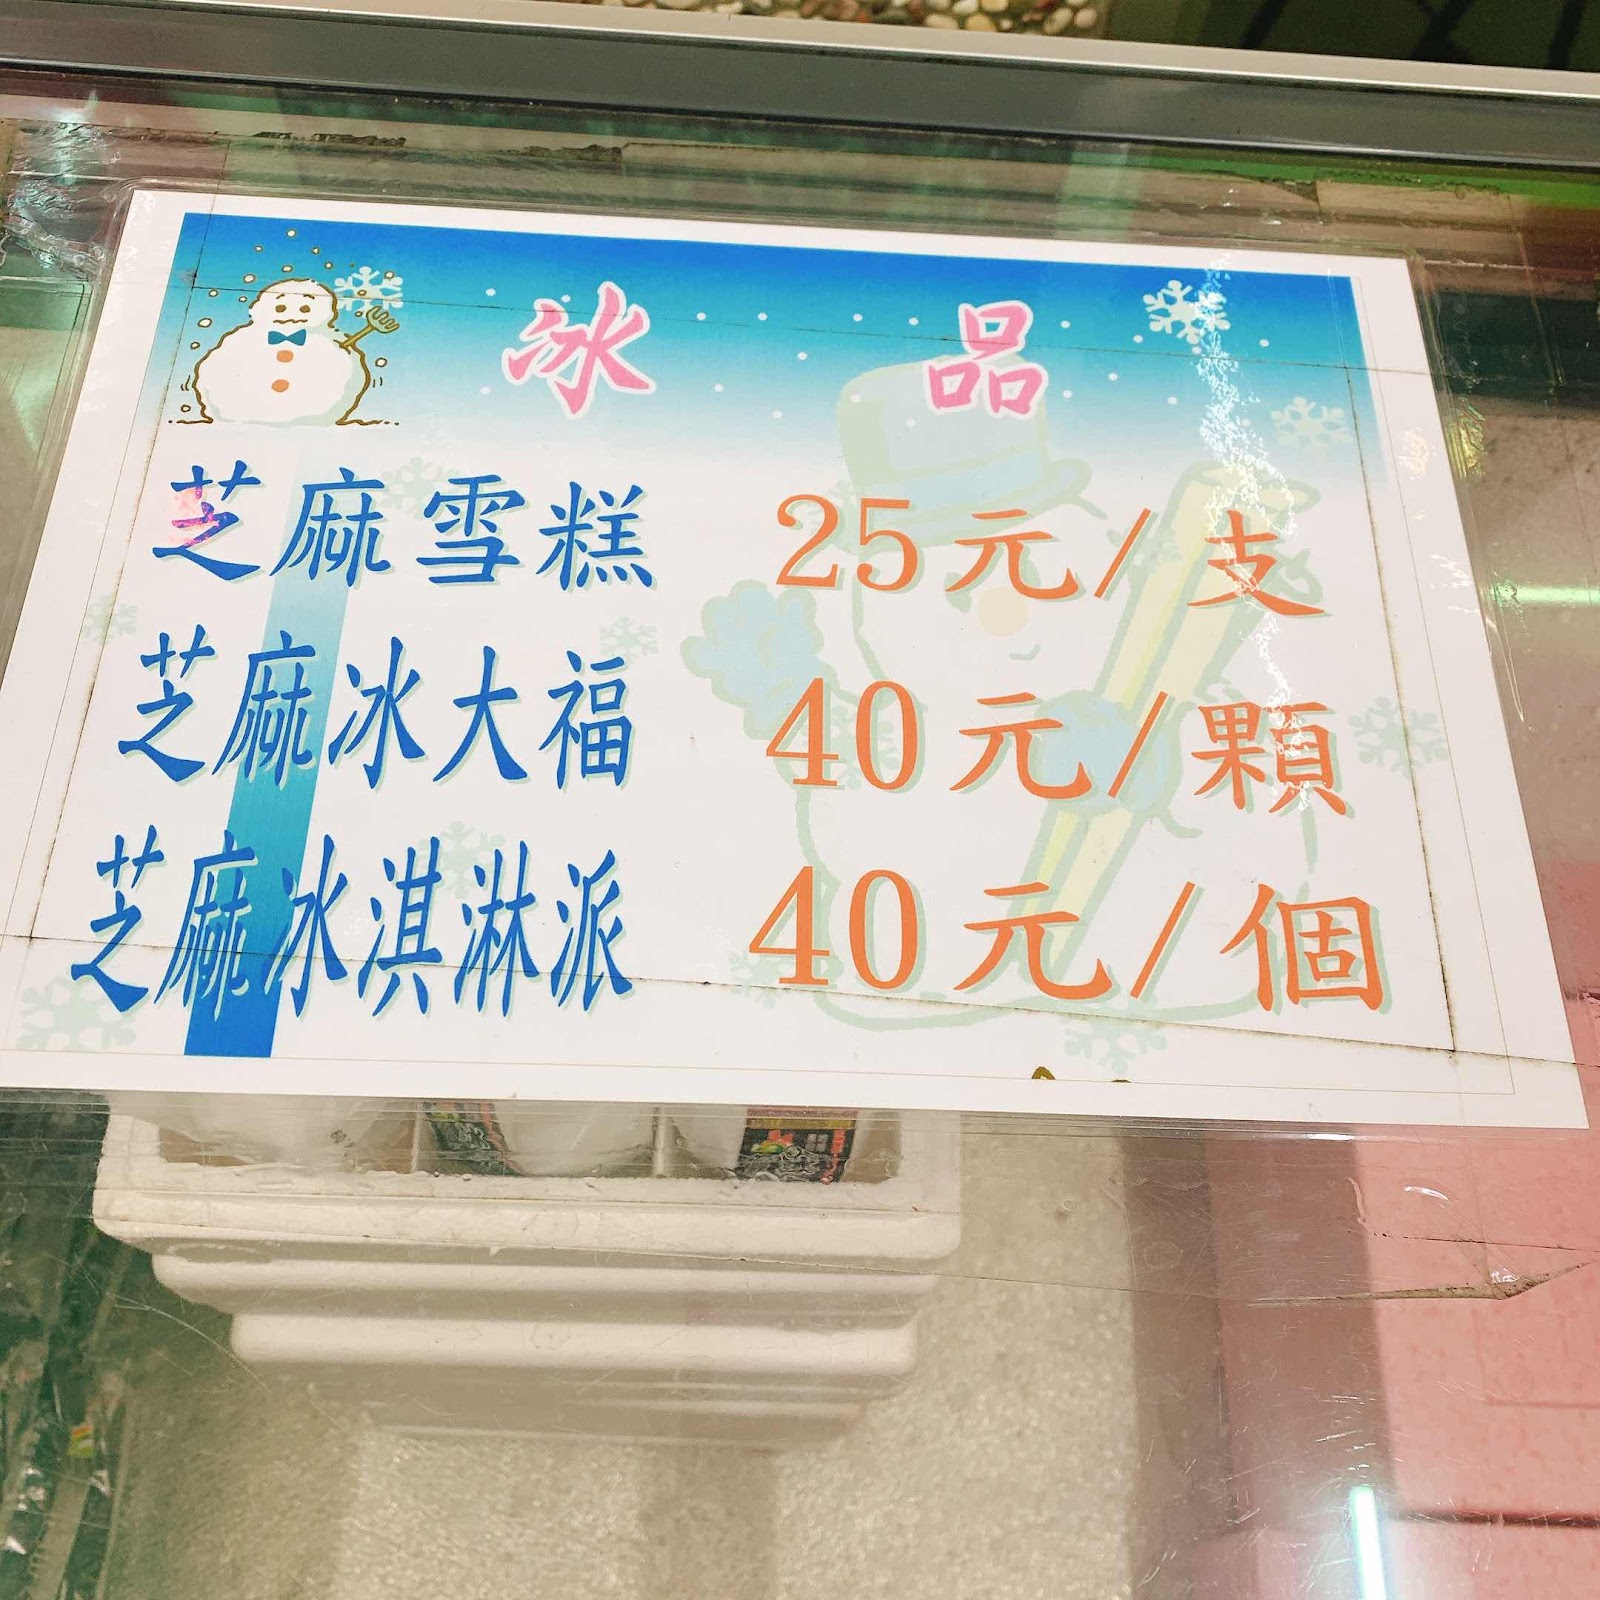 冰品
芝麻雪糕 25元/支
芝麻冰大福 40元/顆
芝麻冰淇淋派 40元/個